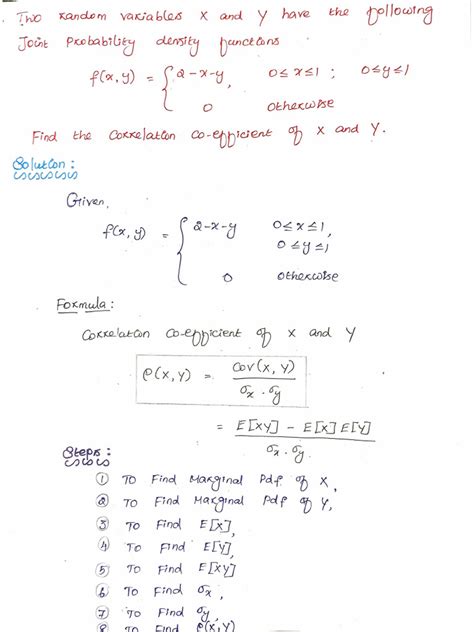 Two random variables X and Y have the following
Joint Probability density functions
f(x,y) = { 2-x-y, 0≤x≤1 ; 0≤y≤1
0 otherwise
Find the correlation co-efficient of X and Y.
Solution :
Given,
f(x,y) = { 2-x-y 0≤x≤1,
0≤y≤1
0 otherwise
Formula :
Correlation co-efficient of X and Y
ρ(X,Y) = Cov(X,Y) / σx . σy
= E[XY] - E[X] E[Y] / σx . σy
Steps :
① To Find Marginal Pdf of X,
② To Find Marginal Pdf of Y,
③ To Find E[X],
④ To Find E[Y],
⑤ To Find E[XY]
⑥ To Find σx,
⑦ To Find σy,
⑧ To Find ρ(X,Y)